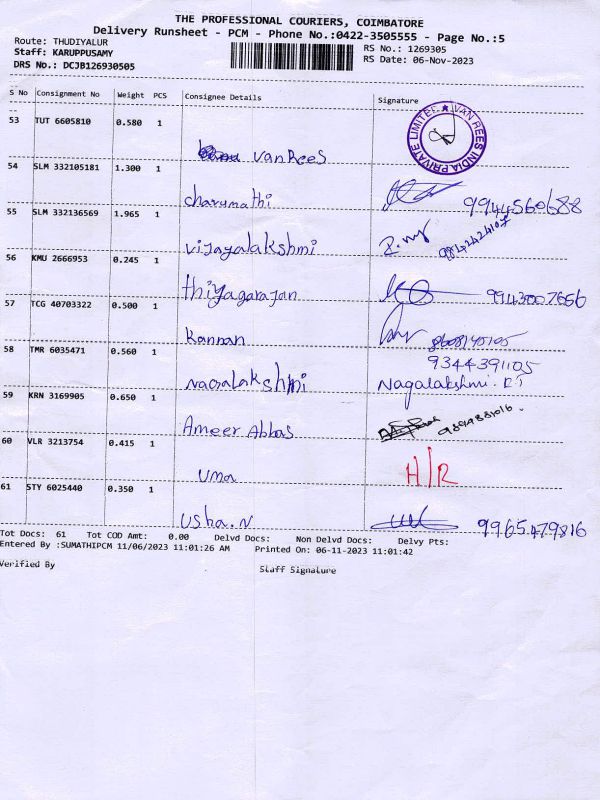 THE PROFESSIONAL COURIERS, COIMBATORE
Delivery Runsheet - PCM - Phone No.:0422-3505555 - Page No.:5
Route: THUDIYALUR
RS No.: 1269305
Staff: KARUPPUSAMY
RS Date: 06-Nov-2023
DRS No.: DCJB126930505
S No Consignment No Weight PCS Consignee Details Signature
53 TUT 6605810 0.580 1
VanRees
VAN REES INDIA PRIVATE LIMITED
54 SLM 332105181 1.300 1
charumathi 9944560688
55 SLM 332136569 1.965 1
vijayalakshmi
56 KMU 2666953 0.245 1
thiyagarajan 9943007656
57 TCG 40703322 0.500 1
Kannan
58 TMR 6035471 0.560 1
9344391105
Nagalakshmi Nagalakshmi.
59 KRN 3169905 0.650 1
Ameer Abbas
60 VLR 3213754 0.415 1
Uma H/R
61 STY 6025440 0.350 1
Usha.N 9965479816
Tot Docs: 61 Tot COD Amt: 0.00 Delvd Docs: Non Delvd Docs: Delvy Pts:
Entered By :SUMATHIPCM 11/06/2023 11:01:26 AM Printed On: 06-11-2023 11:01:42
Verified By Staff Signature